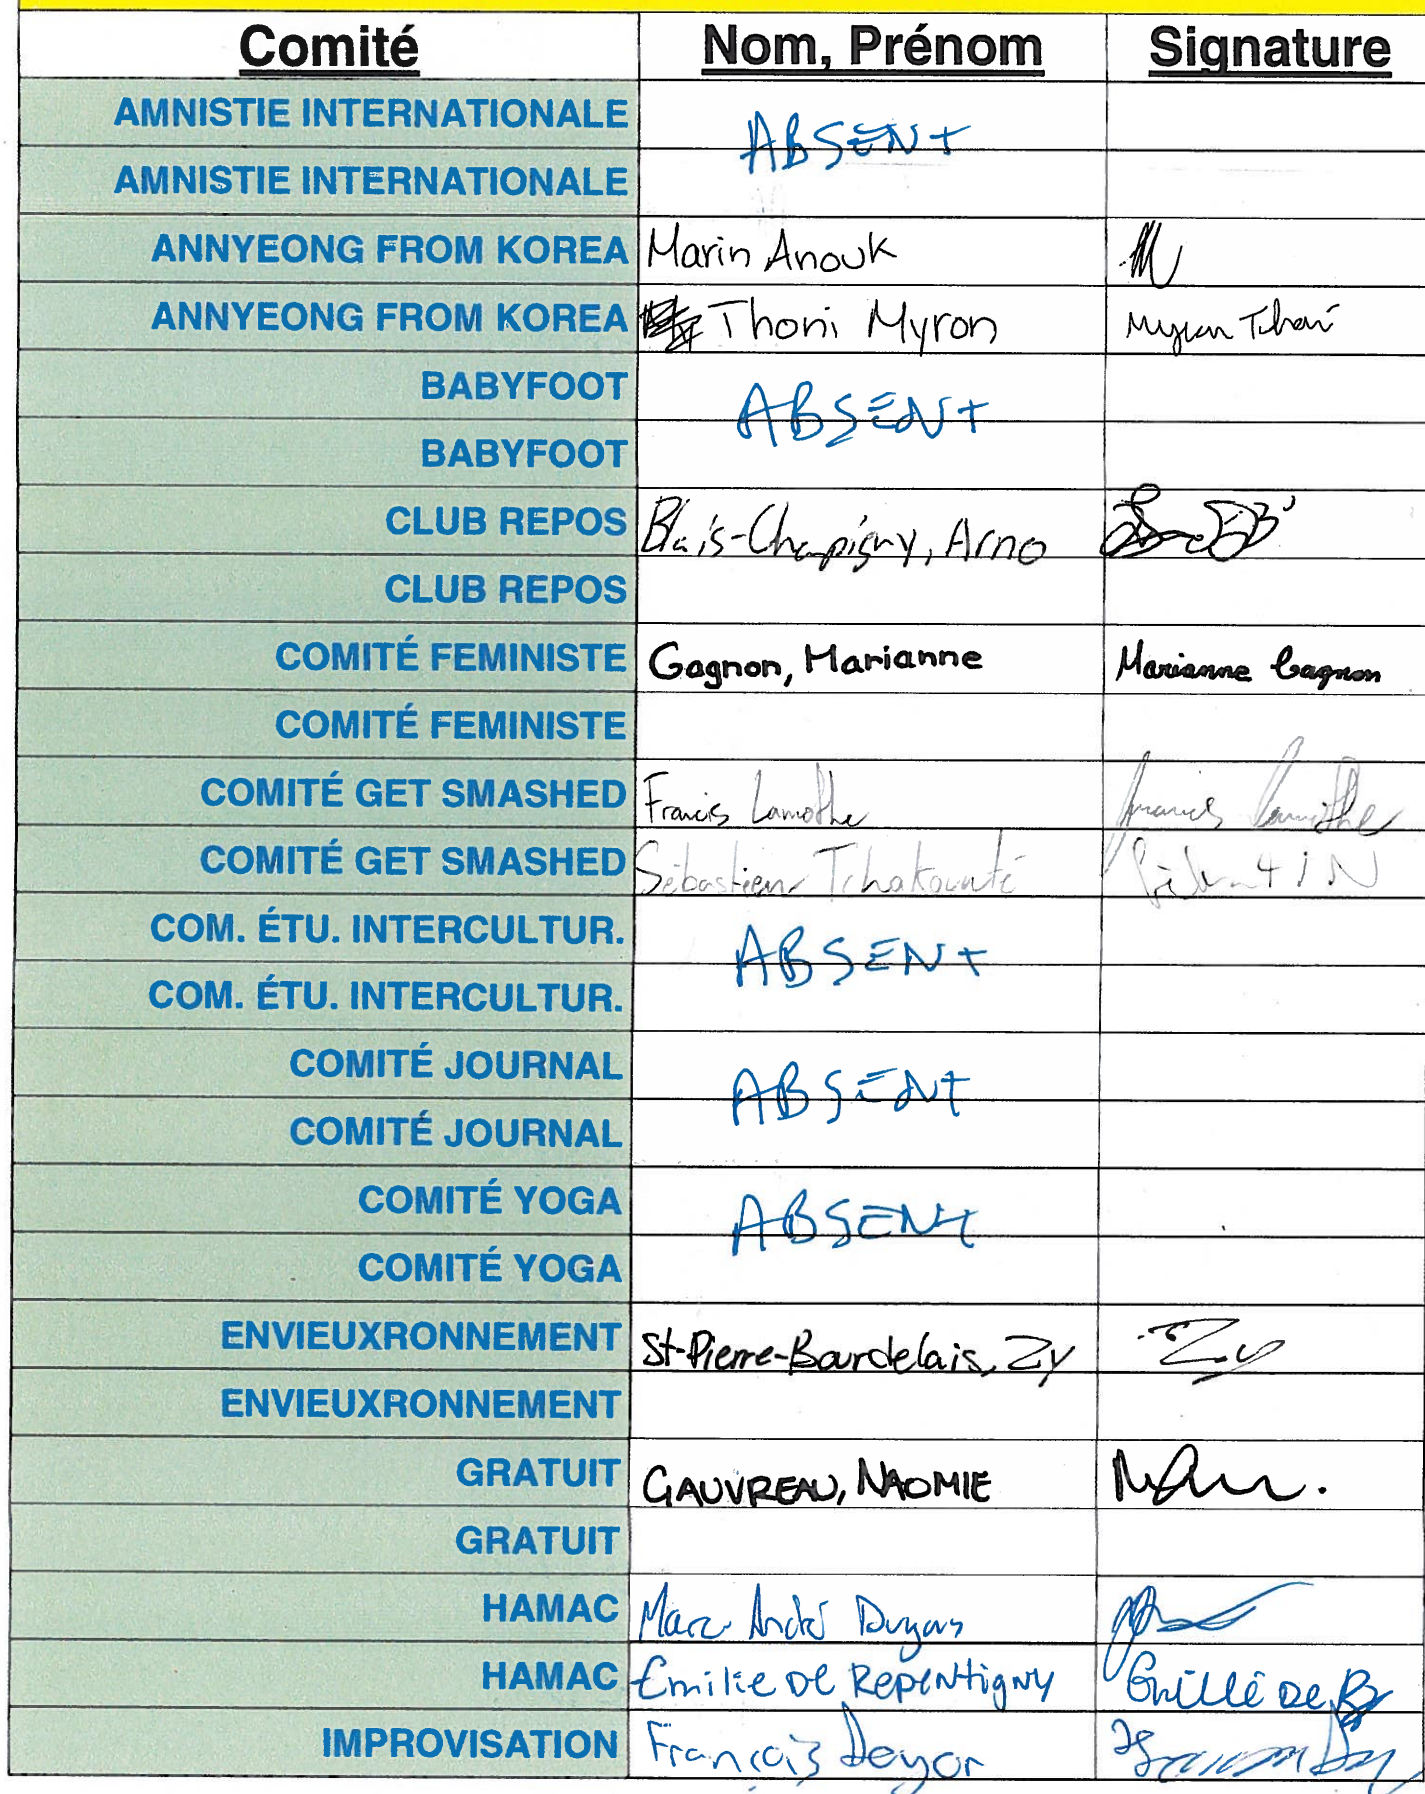 Comité Nom, Prénom Signature
AMNISTIE INTERNATIONALE ABSENT
AMNISTIE INTERNATIONALE
ANNYEONG FROM KOREA Marin Anouk
ANNYEONG FROM KOREA Thoni Myron
BABYFOOT ABSENT
BABYFOOT
CLUB REPOS Blais-Chapigny, Arno
CLUB REPOS
COMITÉ FEMINISTE Gagnon, Marianne Marianne Gagnon
COMITÉ FEMINISTE
COMITÉ GET SMASHED Francis Lamothe Francis Lamothe
COMITÉ GET SMASHED Sébastien Tchakounté
COM. ÉTU. INTERCULTUR. ABSENT
COM. ÉTU. INTERCULTUR.
COMITÉ JOURNAL ABSENT
COMITÉ JOURNAL
COMITÉ YOGA ABSENT
COMITÉ YOGA
ENVIEUXRONNEMENT St-Pierre-Bourdelais, Zy Zy
ENVIEUXRONNEMENT
GRATUIT GAUVREAU, NAOMIE
GRATUIT
HAMAC Marc André
HAMAC Emilie De Repentigny
IMPROVISATION François